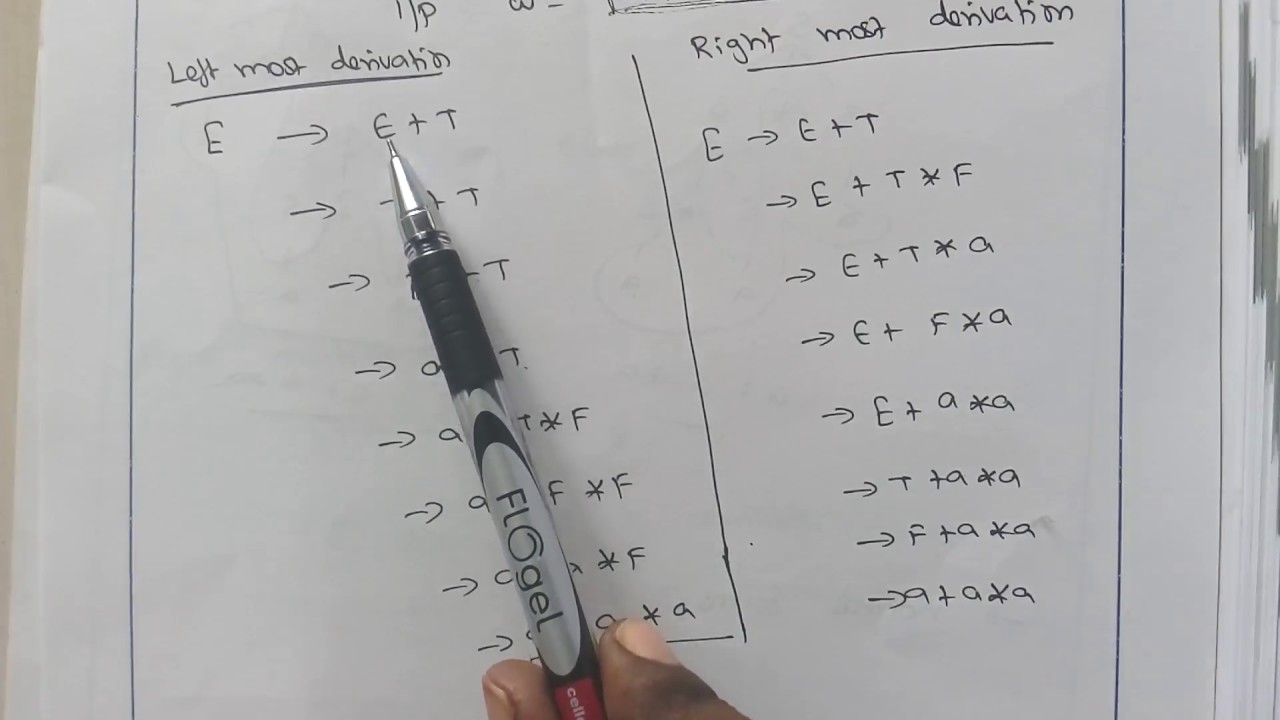 i/p w =
Left most derivation
E → E + T
→ + T
→ T
→ a T.
→ a T * F
→ a F * F
→ * F
→ a * a
Right most derivation
E → E + T
→ E + T * F
→ E + T * a
→ E + F * a
→ E + a * a
→ T + a * a
→ F + a * a
→ a + a * a
FLOgel
cello